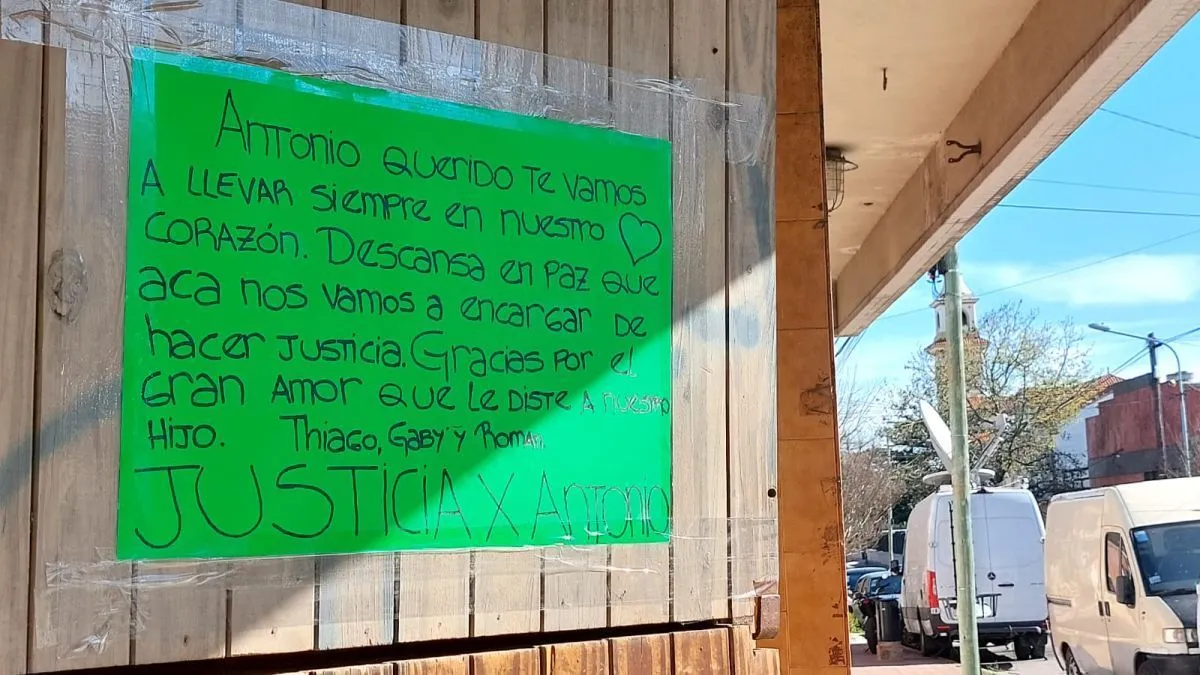 Antonio querido te vamos
a llevar siempre en nuestro
corazón. Descansa en paz que
aca nos vamos a encargar de
hacer justicia. Gracias por el
gran amor que le diste a nuestro
hijo. Thiago, Gaby y Román.
JUSTICIA X Antonio